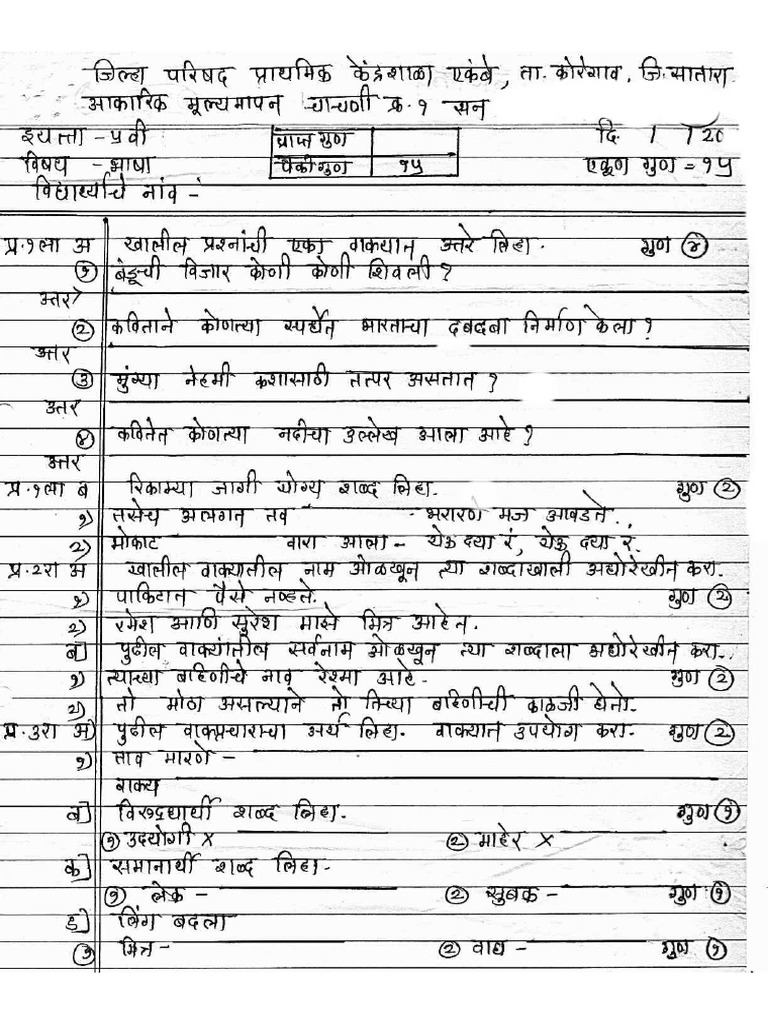 जिल्हा परिषद प्राथमिक केंद्रशाळा एकंबे, ता. कोरेगाव, जि. सातारा
आकारिक मूल्यमापन चाचणी क्र. १ सन
इयत्ता - ५वी प्राप्त गुण दि. / / 20
विषय - भाषा पैकी गुण १५ एकूण गुण = १५
विद्यार्थ्याचे नांव -
प्र.१ला अ खालील प्रश्नांची एका वाक्यात उत्तरे लिहा. गुण ४
१ बंडूची विजार कोणी कोणी शिवली ?
उत्तर
२ कविताने कोणत्या स्पर्धेत भारताचा दबदबा निर्माण केला ?
उत्तर
३ मुंग्या नेहमी कशासाठी तत्पर असतात ?
उत्तर
४ कवितेत कोणत्या नदीचा उल्लेख आला आहे ?
उत्तर
प्र.१ला ब रिकाम्या जागी योग्य शब्द लिहा. गुण २
१) तसेच अलगत तव भरारण मज आवडते.
२) मोकाट वारा आला - येऊ द्या रं, येऊ द्या रं.
प्र.२रा अ खालील वाक्यातील नाम ओळखून त्या शब्दाखाली अधोरेखीत करा.
१) पाकिटात पैसे नव्हते. गुण २
२) रमेश आणि सुरेश माझे मित्र आहेत.
ब] पुढील वाक्यांतील सर्वनाम ओळखून त्या शब्दाला अधोरेखीत करा.
१) त्याच्या बहिणीचे नाव रेश्मा आहे. गुण २
२) तो मोठा असल्याने तो तिच्या बहिणीची काळजी घेतो.
प्र.३रा अ) पुढील वाक्प्रचाराचा अर्थ लिहा. वाक्यात उपयोग करा. गुण २
१) ताव मारणे -
वाक्य
ब] विरुद्धार्थी शब्द लिहा. गुण १
१ उदयोगी X २ माहेर X
क] समानार्थी शब्द लिहा.
१ लेक - २ सुबक - गुण १
ड] लिंग बदला
१ मित्र - २ वाघ - गुण १